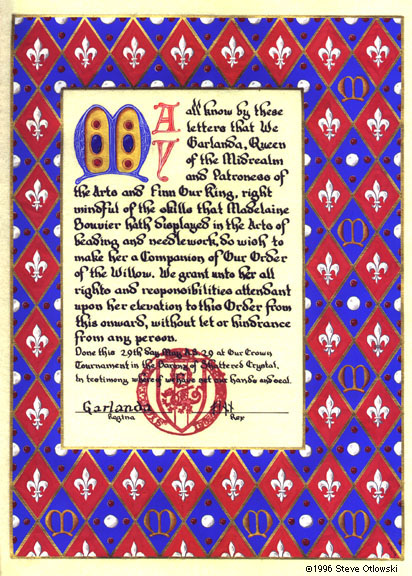 May all know by these
letters that We
Garlanda, Queen
of the Midrealm
and Patroness of
the Arts and Finn Our King, right
mindful of the skills that Madelaine
Bouvier hath displayed in the Arts of
beading and needlework, do wish to
make her a Companion of Our Order
of the Willow. We grant unto her all
rights and responsibilities attendant
upon her elevation to this Order from
this onward, without let or hindrance
from any person.
Done this 29th day May A.S. 29 at Our Crown
Tournament in the Barony of Shattered Crystal.
In testimony where of we have set our hands and seal.
Garlanda
Regina Rex
©1996 Steve Otlowski